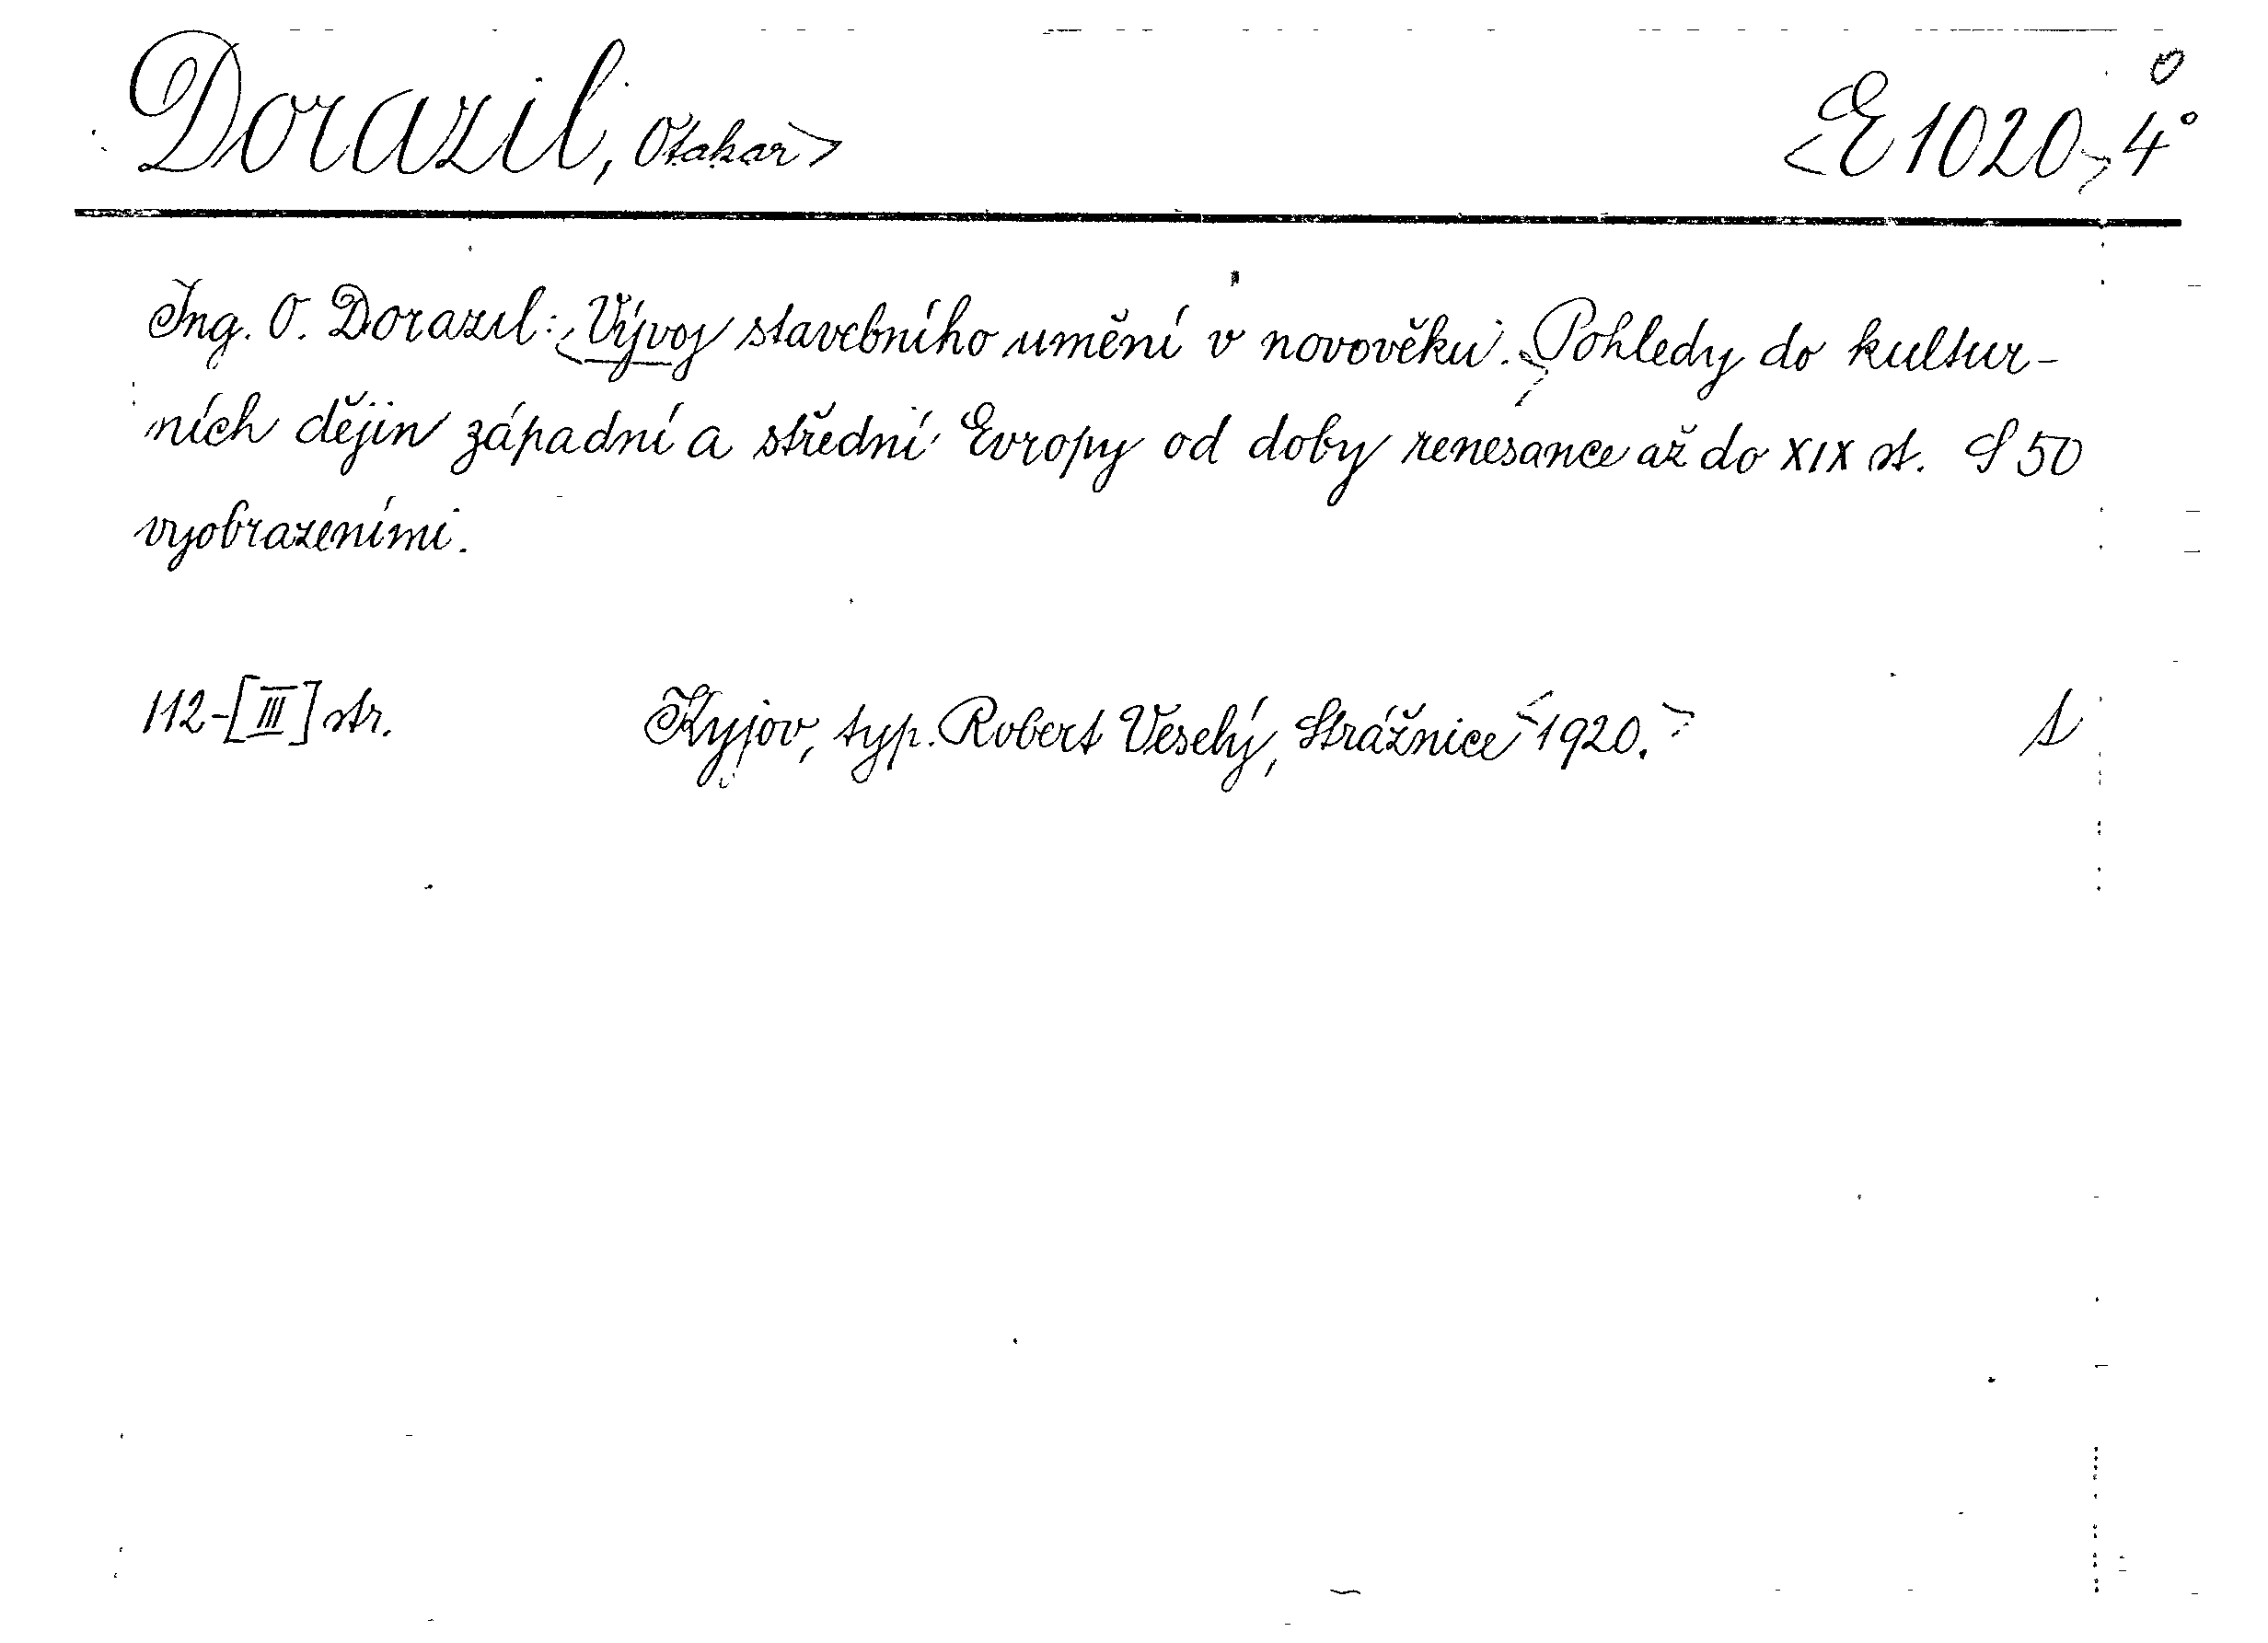 Dorazil, Otakar> <E 1020> 4°
Ing. O. Dorazil: <Vývoj stavebního umění v novověku.> Pohledy do kultur-
ních dějin západní a střední Evropy od doby renesance až do XIX st. S 50
vyobrazeními.
112-[III] str. Kyjov, typ. Robert Veselý, Strážnice <1920.> s